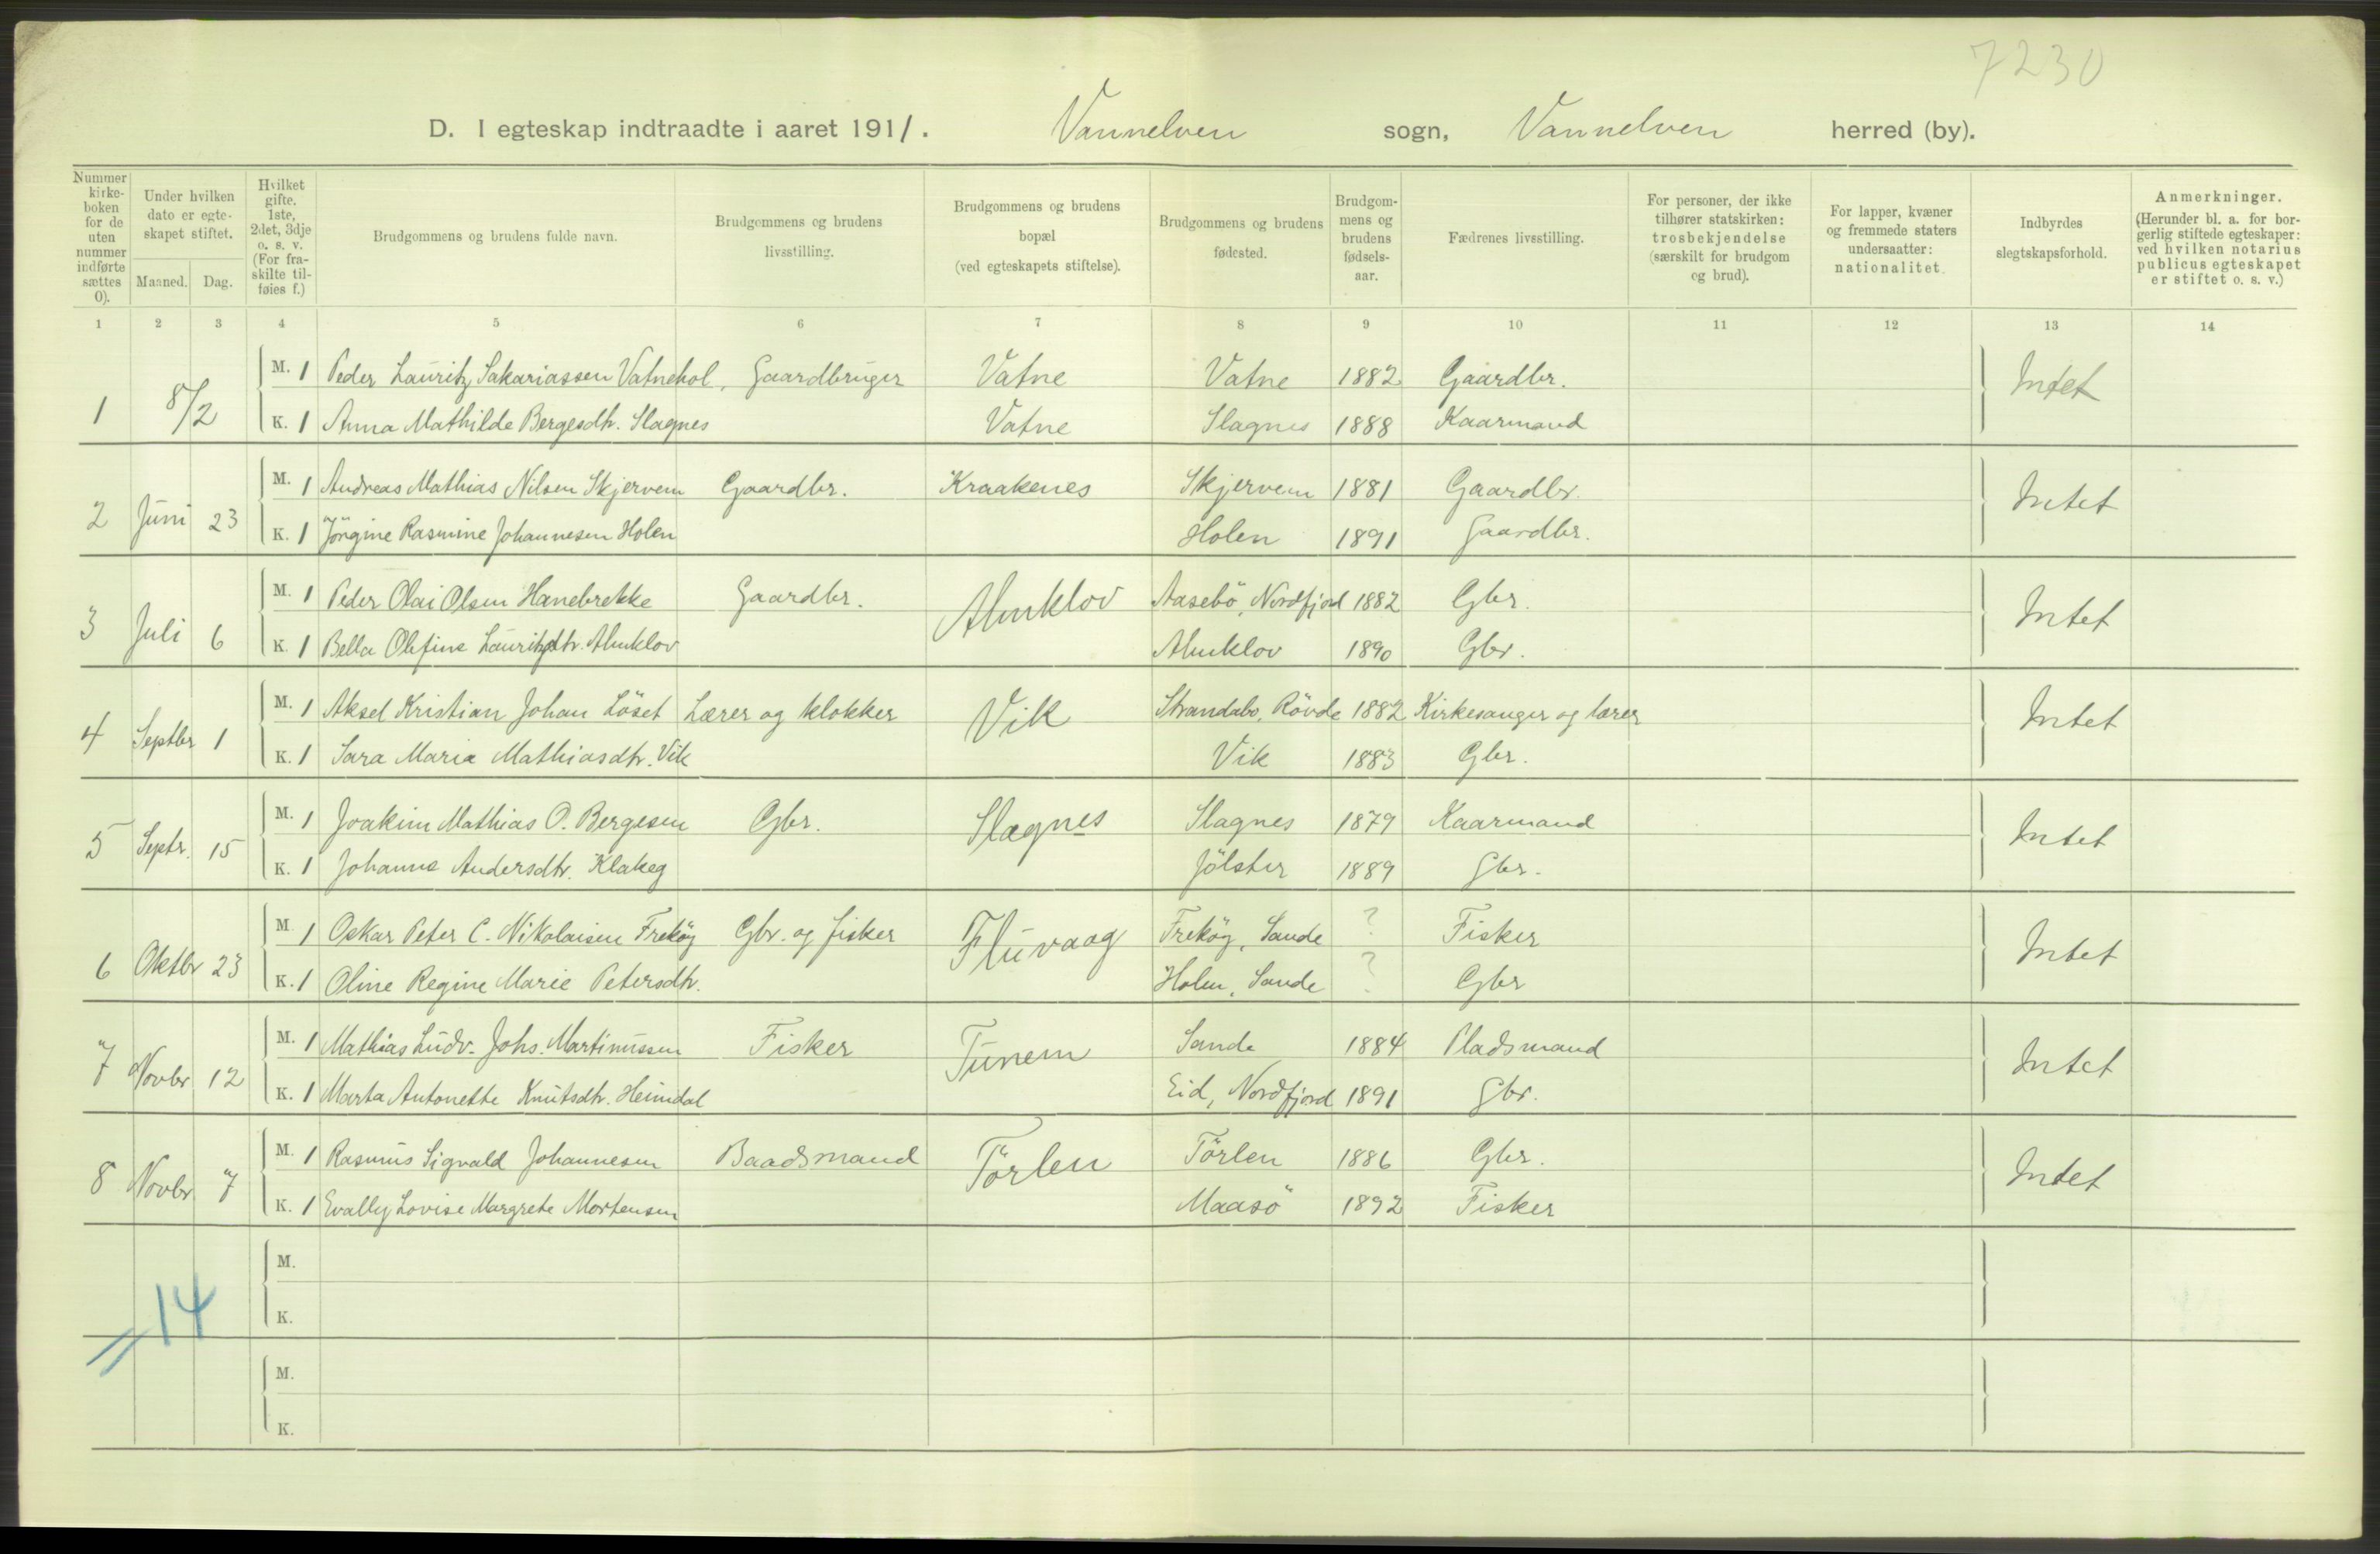 7230
D. I egteskap indtraadte i aaret 1911. Vannelven sogn, Vannelven herred (by).
Nummer kirke-boken for de uten nummer indførte sættes 0).
Under hvilken dato er egte-skapet stiftet.
Maaned. Dag.
Hvilket gifte. 1ste, 2det, 3dje o. s. v. (For fra-skilte til-føies f.)
Brudgommens og brudens fulde navn.
Brudgommens og brudens livsstilling.
Brudgommens og brudens bopæl (ved egteskapets stiftelse).
Brudgommens og brudens fødested.
Brudgom-mens og brudens fødsels-aar.
Fædrenes livsstilling.
For personer, der ikke tilhører statskirken: trosbekjendelse (særskilt for brudgom og brud).
For lapper, kvæner og fremmede staters undersaatter: nationalitet.
Indbyrdes slegtskapsforhold.
Anmerkninger. (Herunder bl. a. for bor-gerlig stiftede egteskaper: ved hvilken notarius publicus egteskapet er stiftet o. s. v.)
1 2 3 4 5 6 7 8 9 10 11 12 13 14
M. 1 Peder Lauritz Sakariassen Vatnehol, Gaardbruger Vatne Vatne 1882 Gaardbr. Intet
1 8/2 K. 1 Anna Mathilde Bergesdtr. Slagnes Vatne Slagnes 1888 Kaarmand
M. 1 Andreas Mathias Nilsen Skjervem Gaardbr. Kraakenes Skjervem 1881 Gaardbr. Intet
2 Juni 23 K. 1 Jörgine Rasmine Johannesen Holen Holen 1891 Gaardbr.
M. 1 Peder Olai Olsen Hanebrekke Gaardbr. Almklov Aasebö, Nordfjord 1882 Gbr. Intet
3 Juli 6 K. 1 Bella Olefine Lauritzdtr. Almklov Almklov 1890 Gbr.
M. 1 Aksel Kristian Johan Löset Lærer og klokker Vik Strandabø, Rövde 1882 Kirkesanger og lærer Intet
4 Septbr 1 K. 1 Sara Maria Mathiasdtr. Vik Vik 1883 Gbr.
M. 1 Joakim Mathias O. Bergesen Gbr. Slagnes Slagnes 1879 Kaarmand Intet
5 Septr. 15 K. 1 Johanne Andersdtr. Klakeg Jölster 1889 Gbr.
M. 1 Oskar Peter C. Nikolaisen Freköy Gbr. og fisker Fluvaag Freköy, Sande ? Fisker Intet
6 Oktbr 23 K. 1 Oline Regine Marie Petersdtr. Holen, Sande ? Gbr
M. 1 Mathias Ludv. Johs. Martinussen Fisker Tunem Sande 1884 Pladsmand Intet
7 Novbr 12 K. 1 Marta Antonette Knutsdtr. Heimdal Eid, Nordfjord 1891 Gbr.
M. 1 Rasmus Sigvald Johannesen Baadsmand Törlen Törlen 1886 Gbr. Intet
8 Novbr 7 K. 1 Evally Lovise Margrete Mortensen Maasö 1892 Fisker
M.
14 K.
M.
K.